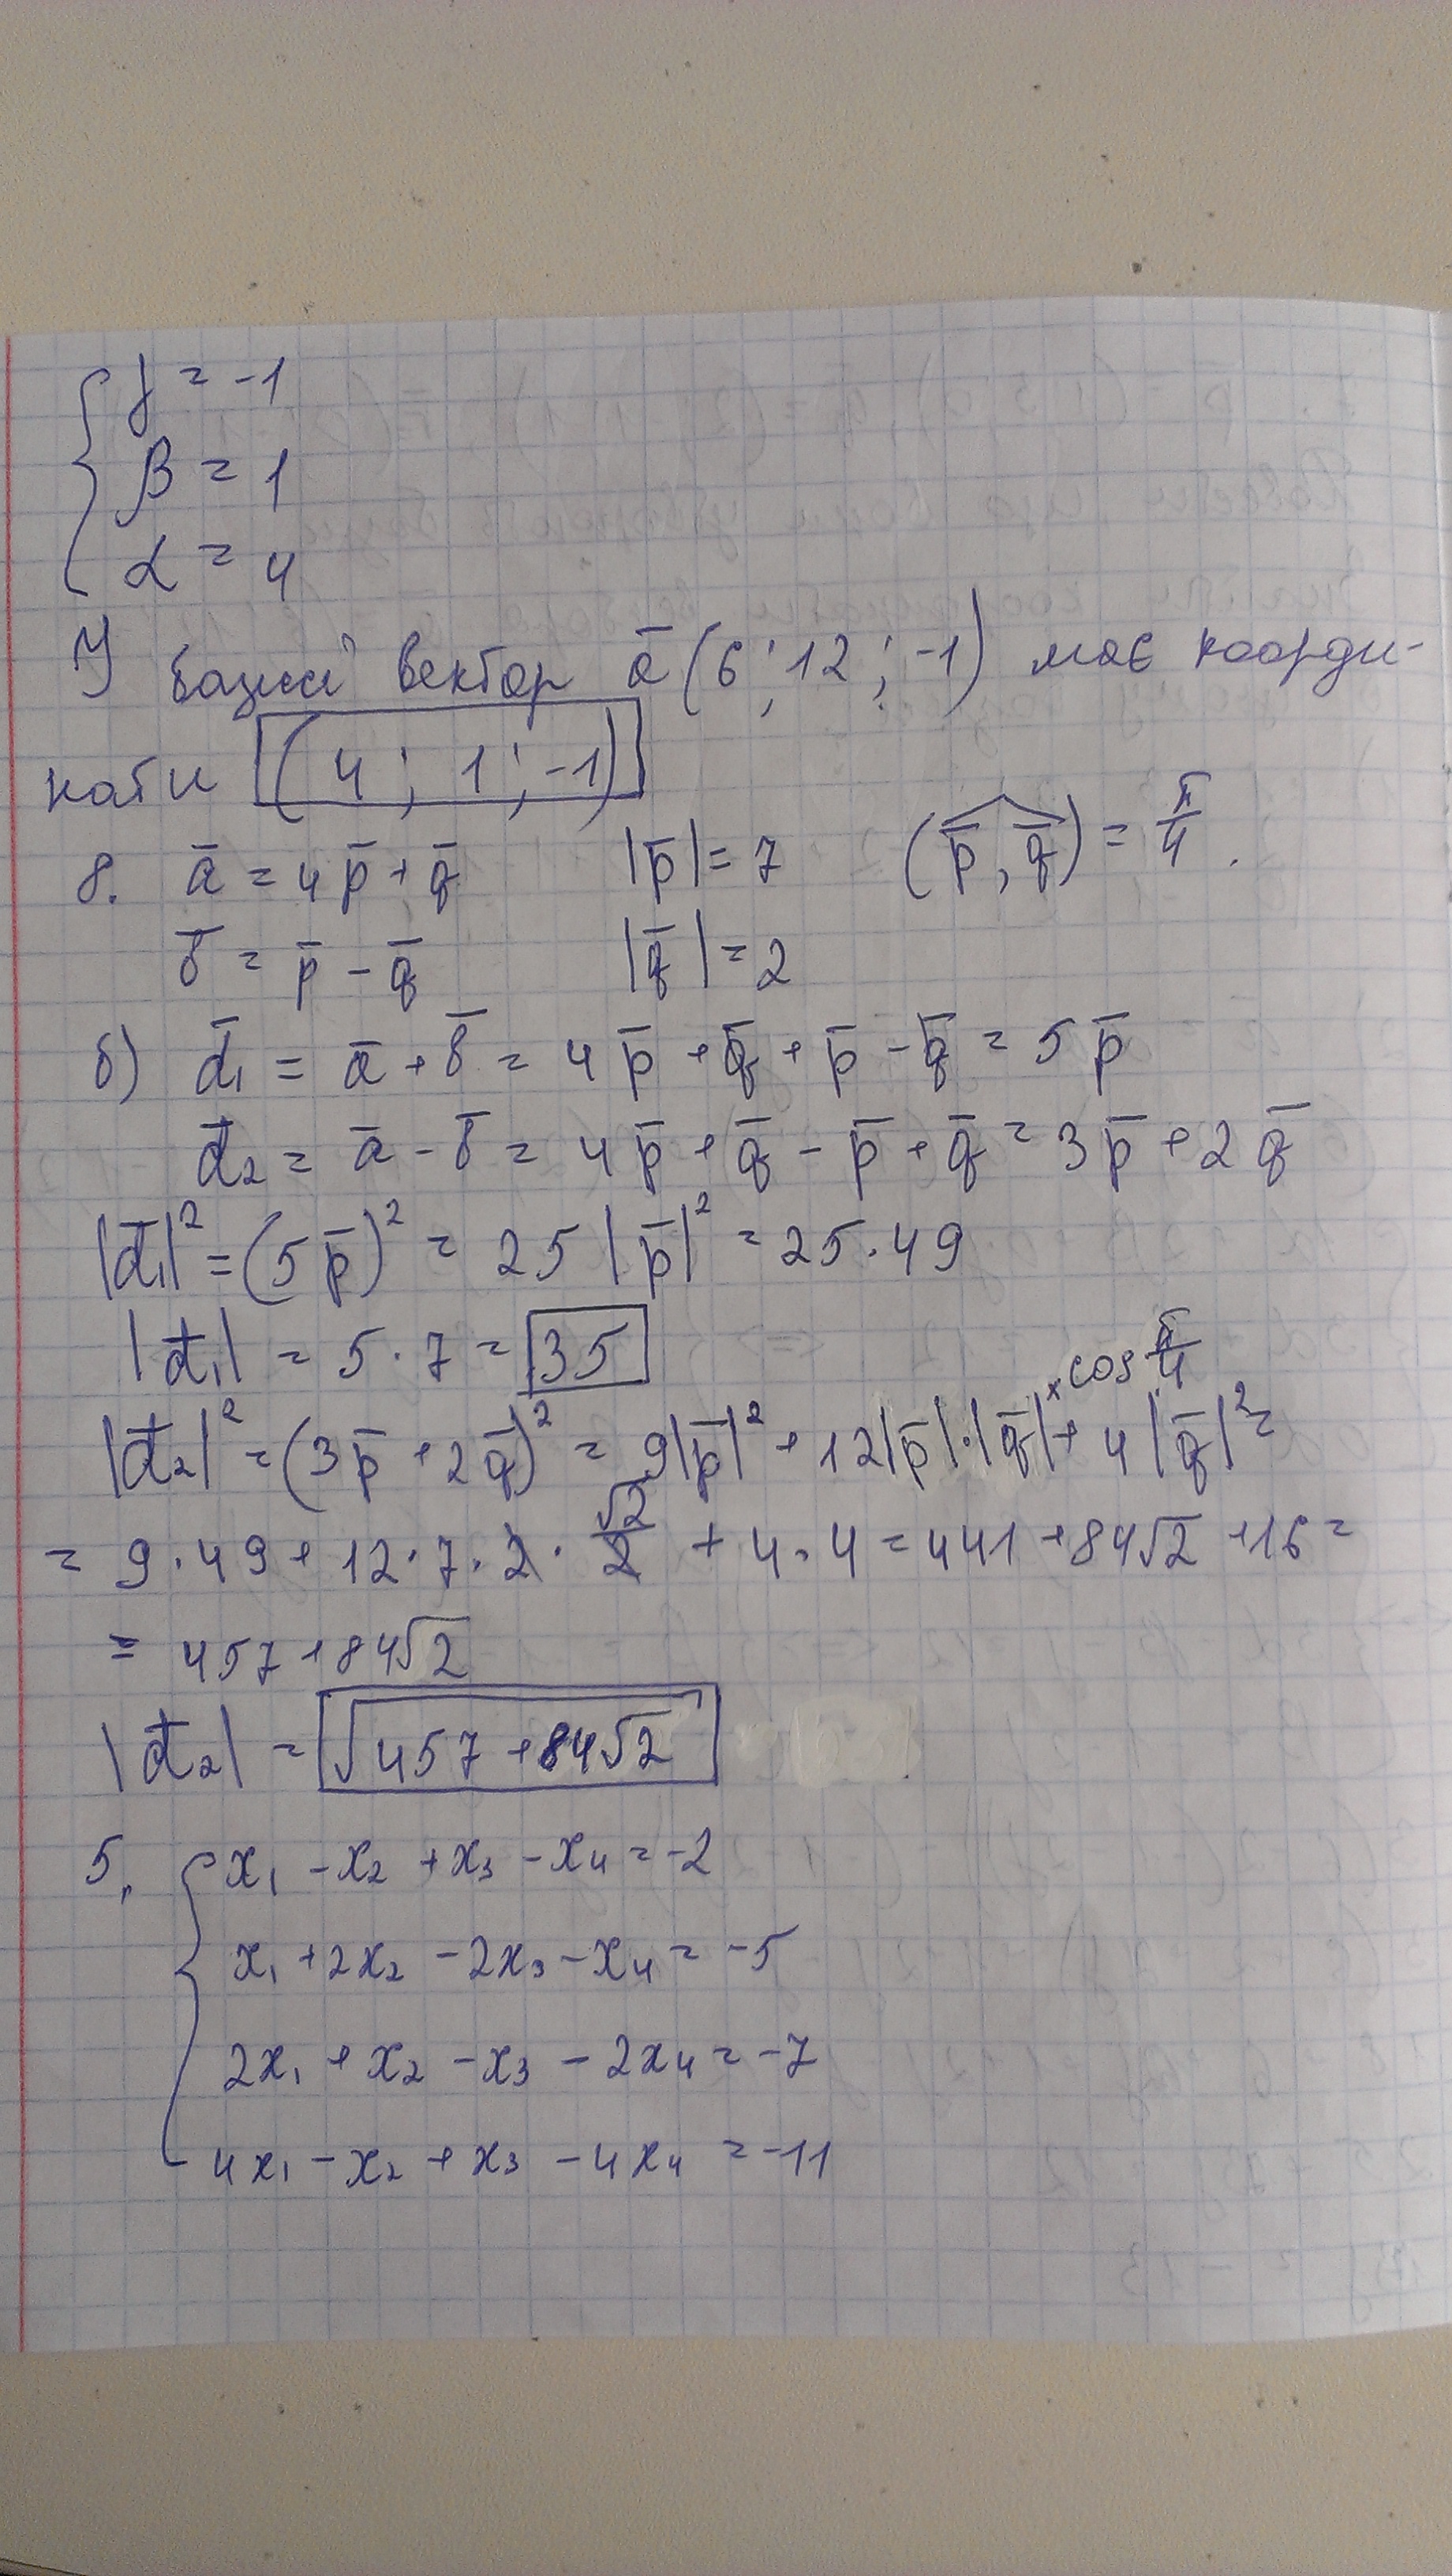 { γ = -1
β = 1
α = 4
У базисі вектор a̅ (6; 12; -1) має коорди-
нати (4; 1; -1)
8. a̅ = 4p̅ + q̅ |p̅| = 7 (p̅, q̅) = π/4.
b̅ = p̅ - q̅ |q̅| = 2
б) d̅₁ = a̅ + b̅ = 4p̅ + q̅ + p̅ - q̅ = 5p̅
d̅₂ = a̅ - b̅ = 4p̅ + q̅ - p̅ + q̅ = 3p̅ + 2q̅
|d̅₁|² = (5p̅)² = 25|p̅|² = 25·49
|d̅₁| = 5·7 = 35
|d̅₂|² = (3p̅ + 2q̅)² = 9|p̅|² + 12|p̅|·|q̅| × cos π/4 + 4|q̅|² =
= 9·49 + 12·7·2·√2/2 + 4·4 = 441 + 84√2 + 16 =
= 457 + 84√2
|d̅₂| = √(457 + 84√2)
5. { x₁ - x₂ + x₃ - x₄ = -2
x₁ + 2x₂ - 2x₃ - x₄ = -5
2x₁ + x₂ - x₃ - 2x₄ = -7
4x₁ - x₂ + x₃ - 4x₄ = -11